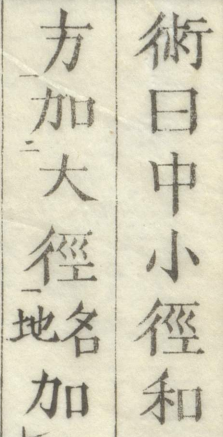 術曰中小徑和
方加二大徑一名地加